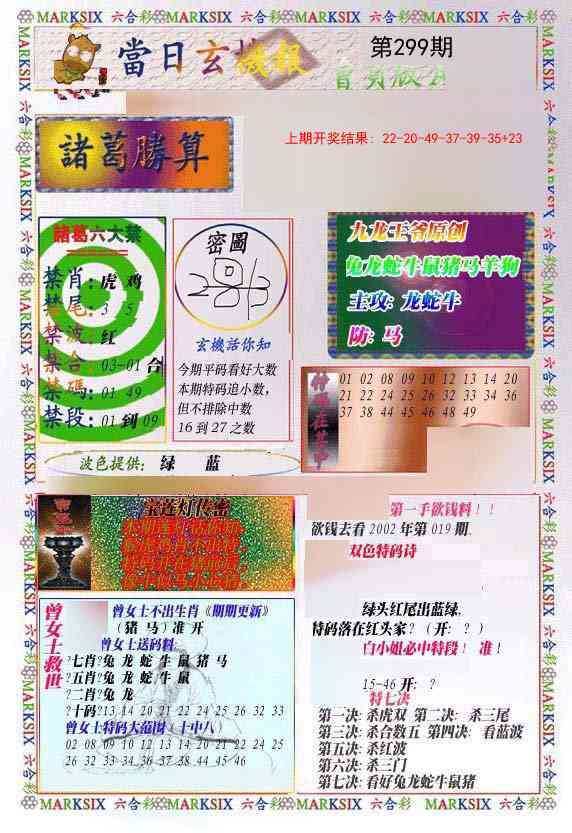 MARKSIX 六合彩 MARKSIX 六合彩 MARKSIX 六合彩 MARKSIX
當日玄機報
第299期
上期开奖结果：22-20-49-37-39-35+23
諸葛勝算
諸葛六大禁
禁肖：虎 鸡
禁尾：3 5
禁波：红
禁合：03-01合
禁碼：01 49
禁段：01到09
密圖
玄機活你知
今期平码看好大数
本期特码追小数，
但不排除中数
16到27之数
波色提供：绿 蓝
九龙王爷原创
兔龙蛇牛鼠猪马羊狗
主攻：龙蛇牛
防：马
01 02 08 09 10 12 13 14 20
21 22 24 25 26 32 33 34 36
37 38 44 45 46 48 49
宝莲灯传密
第一手欲钱料！！
欲钱去看2002年第019期.
双色特码诗
绿头红尾出蓝绿.
特码落在红头家？（开：？）
白小姐必中特段！ 准！
15-46开：？
特七决
第一决：杀虎双 第二决：杀三尾
第三决：杀合数五 第四决：看蓝波
第五决：杀红波
第六决：杀三门
第七决：看好兔龙蛇牛鼠猪
曾女士救世
曾女士不出生肖《期期更新》
（猪 马）准 开
曾女士送码料
?七肖?兔 龙 蛇 牛 鼠 猪 马
?五肖?兔 龙 蛇 牛 鼠
?二肖?兔 龙
?十码?13 14 20 21 22 24 25 26 32 33
曾女士特码大范围（十中八）
02 08 09 10 12 13 14 20 21 22 24 25
26 32 33 34 36 37 38 44 45 46
MARKSIX 六合彩 MARKSIX 六合彩 MARKSIX 六合彩 MARKSIX